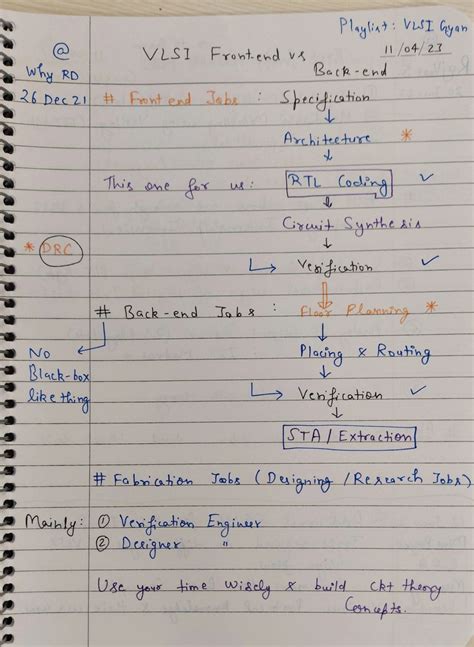 Playlist: VLSI Gyan
@ VLSI Frontend vs 11/04/23
Why RD Back-end
26 Dec 21 # Frontend Jobs : Specification
Architecture *
This one for us: RTL Coding ✓
Circuit Synthesis
* DRC
Verification ✓
# Back-end Jobs : Floor Planning *
No Placing & Routing
Black-box
like thing Verification ✓
STA / Extraction
# Fabrication Jobs (Designing / Research Jobs)
Mainly: ① Verification Engineer
② Designer "
Use your time wisely & build ckt theory
Concepts.